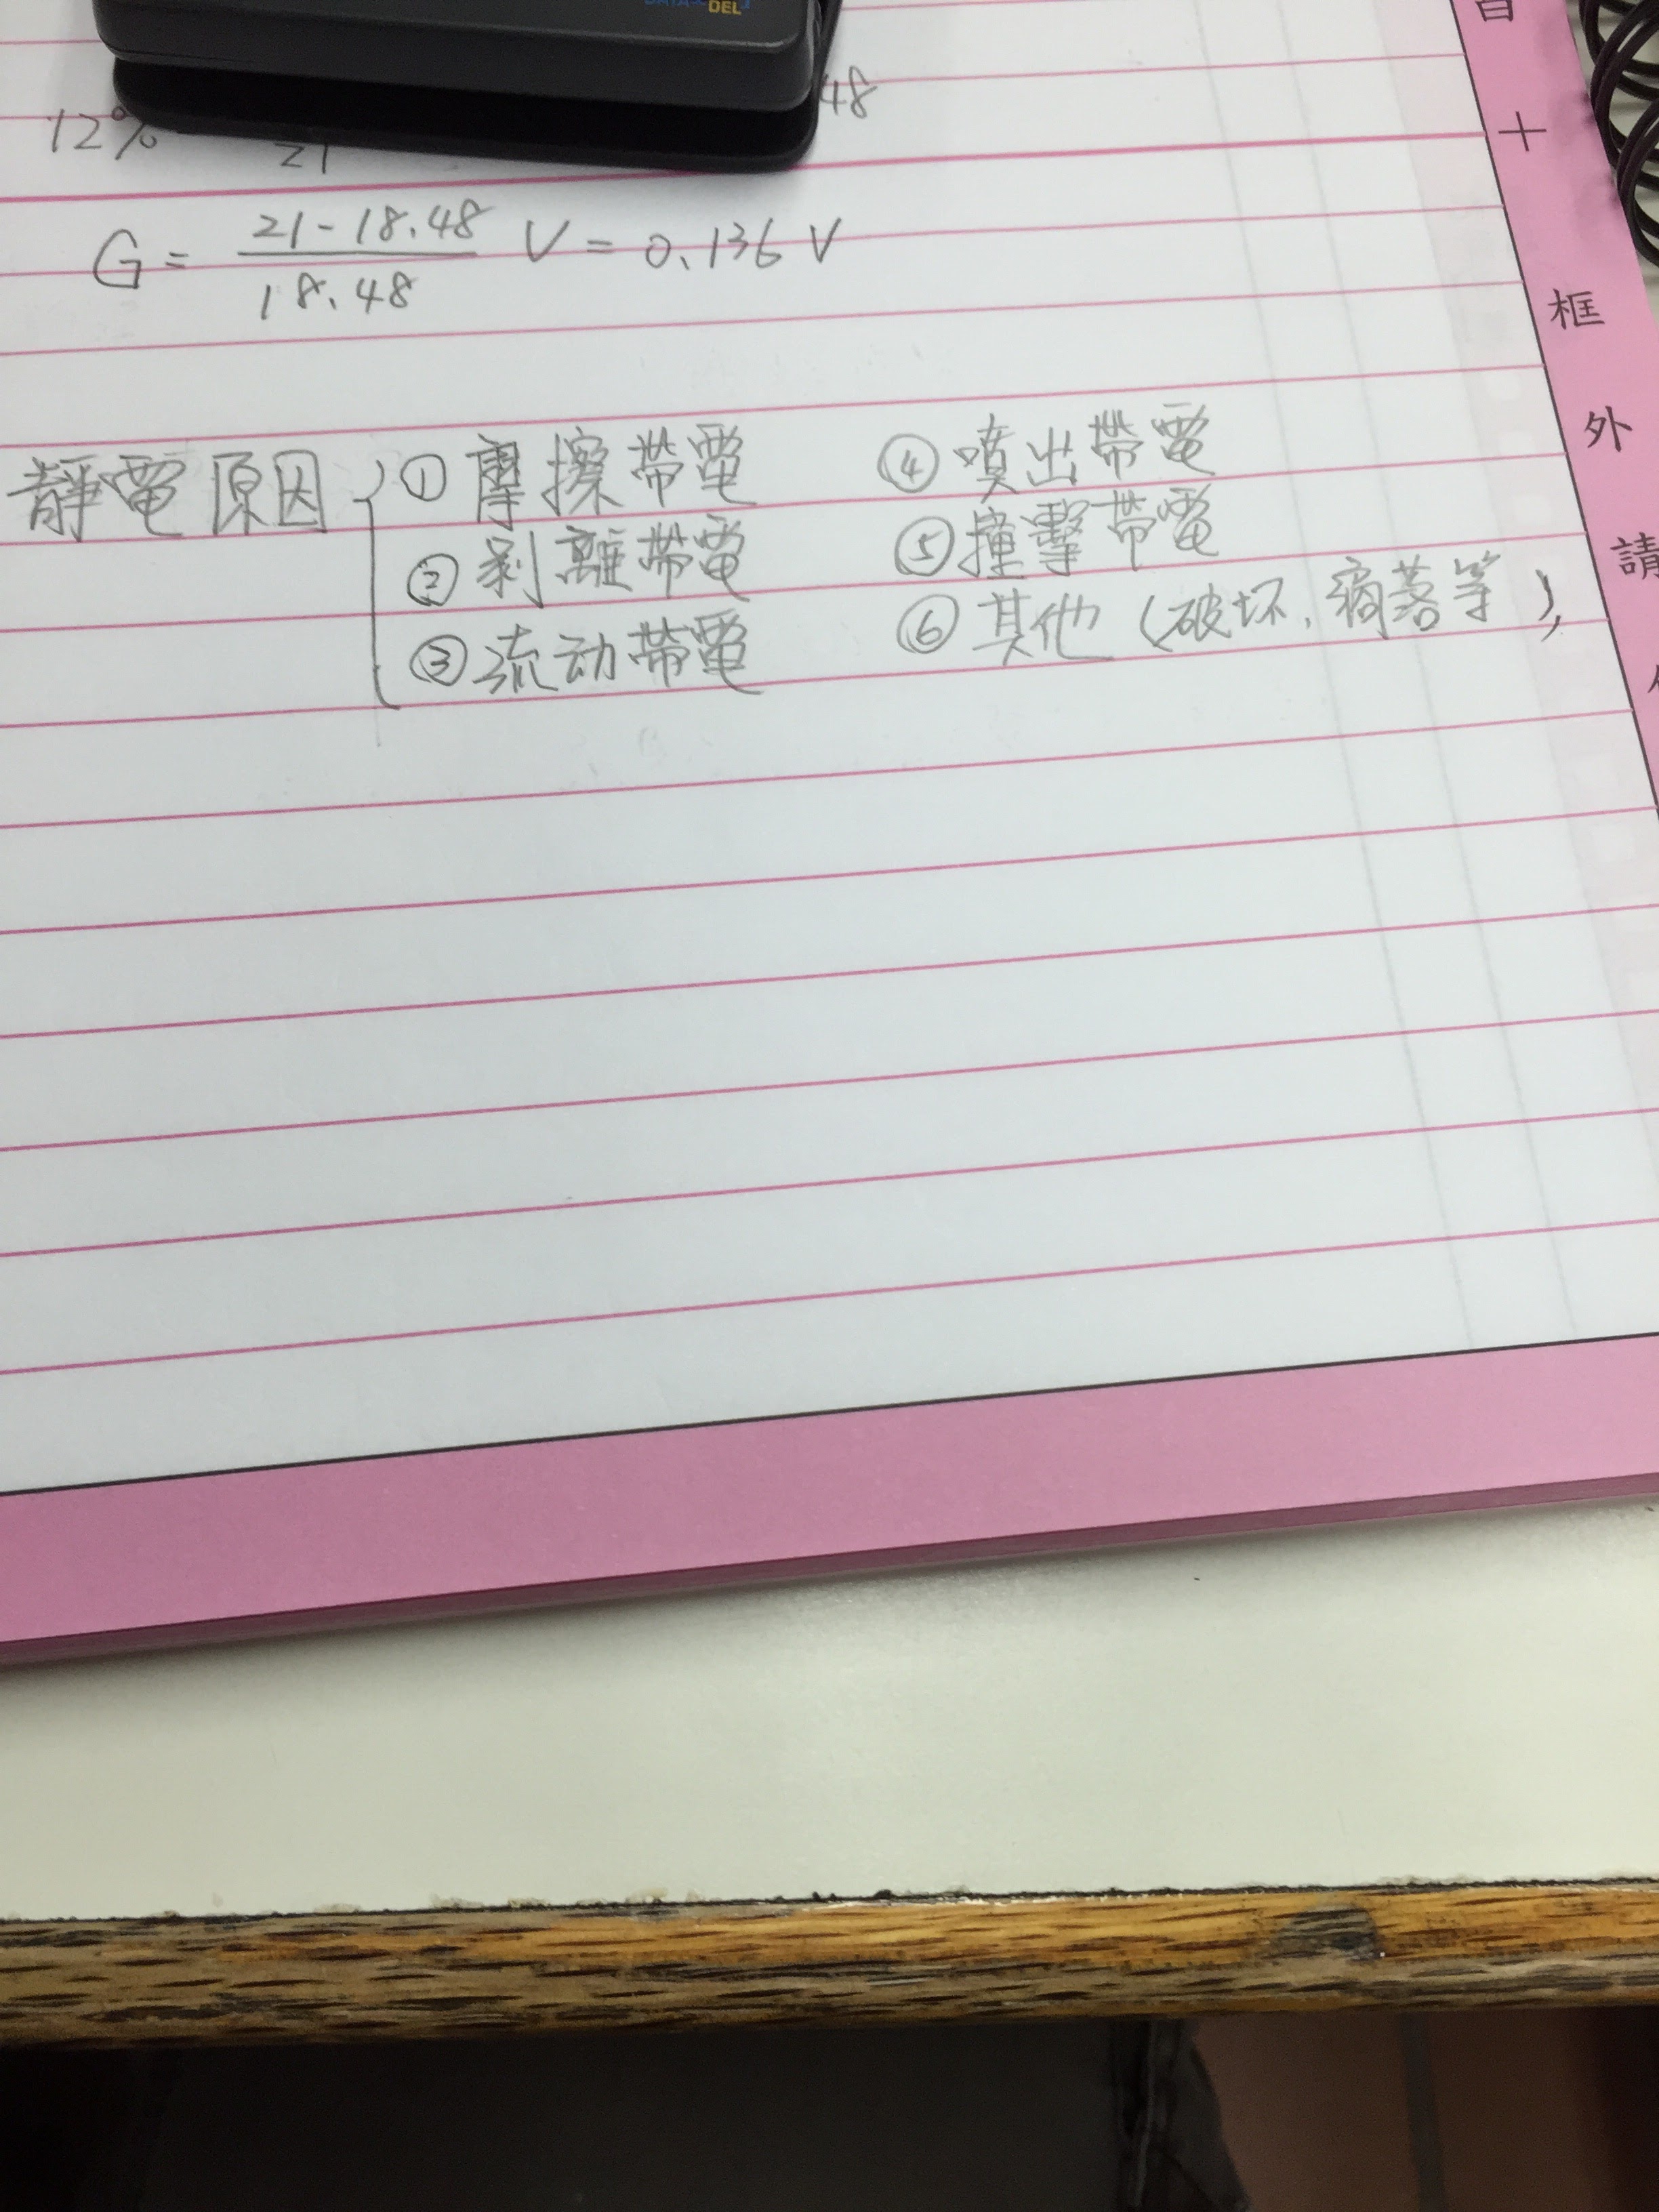 DEL
12%
48
21
G = 21-18.48 / 18.48 V = 0.136 V
靜電原因 ① 摩擦帶電 ④ 噴出帶電
② 剥離帶電 ⑤ 撞擊帶電
③ 流动帶電 ⑥ 其他 (破坏, 滴落等),
十
框
外
請